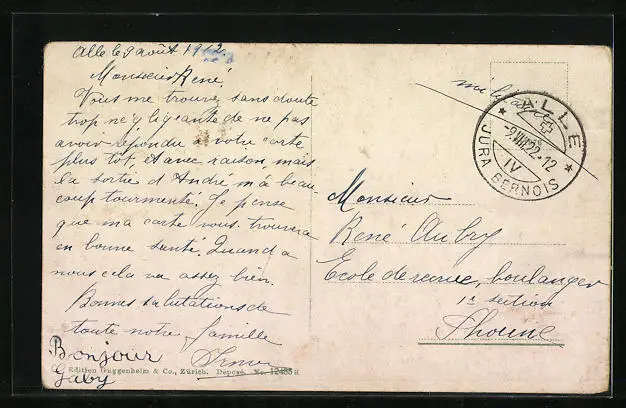 Alle le 9 août 1912.
Monsieur René,
Vous me trouvez sans doute
trop négligeante de ne pas
avoir répondu à votre carte
plus tôt, et avec raison, mais
la sortie d'André m'a beau-
coup tourmenté. Je pense
que ma carte vous trouvera
en bonne santé. Quand à
nous cela va assez bien.
Bonnes salutations de
toute notre famille
Bonjour
Gaby
Edition Guggenheim & Co., Zürich. Déposé. No. 12485
militaire
ALLE
-9.VIII.22.-12
IV
JURA BERNOIS
Monsieur
René Aubry
Ecole de recrue, boulanger
1e section
Thoune